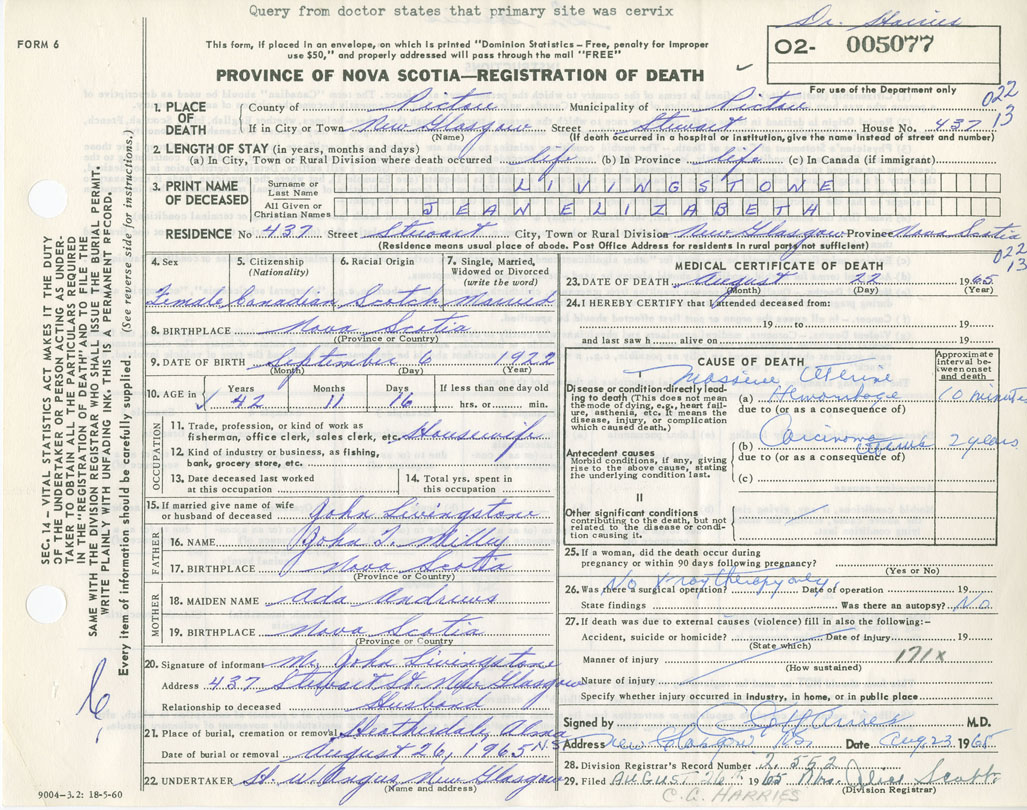 Query from doctor states that primary site was cervix
Dr. Harries
FORM 6
This form, if placed in an envelope, on which is printed "Dominion Statistics – Free, penalty for improper
use $50," and properly addressed will pass through the mail "FREE"
O2- 005077
PROVINCE OF NOVA SCOTIA—REGISTRATION OF DEATH
For use of the Department only
022
13
1. PLACE OF DEATH County of Pictou Municipality of Pictou
If in City or Town New Glasgow Street Stewart House No. 437
(Name) (If death occurred in a hospital or institution, give the name instead of street and number)
2. LENGTH OF STAY (in years, months and days)
(a) In City, Town or Rural Division where death occurred life (b) In Province life (c) In Canada (if immigrant)
3. PRINT NAME OF DECEASED Surname or Last Name LIVINGSTONE
All Given or Christian Names JEAN ELIZABETH
RESIDENCE No 437 Street Stewart City, Town or Rural Division New Glasgow Province Nova Scotia
(Residence means usual place of abode. Post Office Address for residents in rural parts not sufficient)
022
13
4. Sex 5. Citizenship (Nationality) 6. Racial Origin 7. Single, Married, Widowed or Divorced (write the word)
Female Canadian Scotch Married
8. BIRTHPLACE Nova Scotia
(Province or Country)
9. DATE OF BIRTH September 6 1922
(Month) (Day) (Year)
10. AGE in Years Months Days If less than one day old
42 11 16 hrs. or min.
OCCUPATION
11. Trade, profession, or kind of work as
fisherman, office clerk, sales clerk, etc. Housewife
12. Kind of industry or business, as fishing,
bank, grocery store, etc.
13. Date deceased last worked at this occupation 14. Total yrs. spent in this occupation
15. If married give name of wife
or husband of deceased John Livingstone
FATHER
16. NAME John T. Milley
17. BIRTHPLACE Nova Scotia
(Province or Country)
MOTHER
18. MAIDEN NAME Ada Andrews
19. BIRTHPLACE Nova Scotia
(Province or Country)
20. Signature of informant Mr. John Livingstone
Address 437 Stewart St. New Glasgow
Relationship to deceased Husband
21. Place of burial, cremation or removal Heatherdale, Alma
Date of burial or removal August 26, 1965 N.S.
22. UNDERTAKER H. W. Angus New Glasgow
(Name and address)
9004–3.2: 18-5-60
MEDICAL CERTIFICATE OF DEATH
23. DATE OF DEATH August 22 1965
(Month) (Day) (Year)
24. I HEREBY CERTIFY that I attended deceased from:
19 to 19
and last saw h alive on 19
CAUSE OF DEATH
Approximate interval between onset and death
I
Disease or condition directly leading to death (This does not mean the mode of dying, e.g., heart failure, asthenia, etc. It means the disease, injury, or complication which caused death.)
(a) Massive Uterine Hemorrhage 10 minutes
due to (or as a consequence of)
Antecedent causes
Morbid conditions, if any, giving rise to the above cause, stating the underlying condition last.
(b) Carcinoma Uterus 2 years
due to (or as a consequence of)
(c)
II
Other significant conditions
contributing to the death, but not related to the disease or condition causing it.
25. If a woman, did the death occur during
pregnancy or within 90 days following pregnancy?
(Yes or No)
26. Was there surgical operation? No X ray therapy only Date of operation 19
State findings Was there an autopsy? No
27. If death was due to external causes (violence) fill in also the following:–
Accident, suicide or homicide? Date of injury 19
(State which)
Manner of injury 171x
(How sustained)
Nature of injury
Specify whether injury occurred in industry, in home, or in public place
Signed by C G Harries M.D.
Address New Glasgow NS Date Aug 23 1965
28. Division Registrar's Record Number 2,592
29. Filed AUGUST 26th 1965 Mrs. Scott
(Division Registrar)
C. G. HARRIES
SEC. 14 – VITAL STATISTICS ACT MAKES IT THE DUTY
OF THE UNDERTAKER OR PERSON ACTING AS UNDER-
TAKER TO OBTAIN ALL THE PARTICULARS REQUIRED
IN THE "REGISTRATION OF DEATH" AND TO FILE THE
SAME WITH THE DIVISION REGISTRAR WHO SHALL ISSUE THE BURIAL PERMIT.
WRITE PLAINLY WITH UNFADING INK. THIS IS A PERMANENT RECORD.
Every item of information should be carefully supplied. (See reverse side for instructions.)